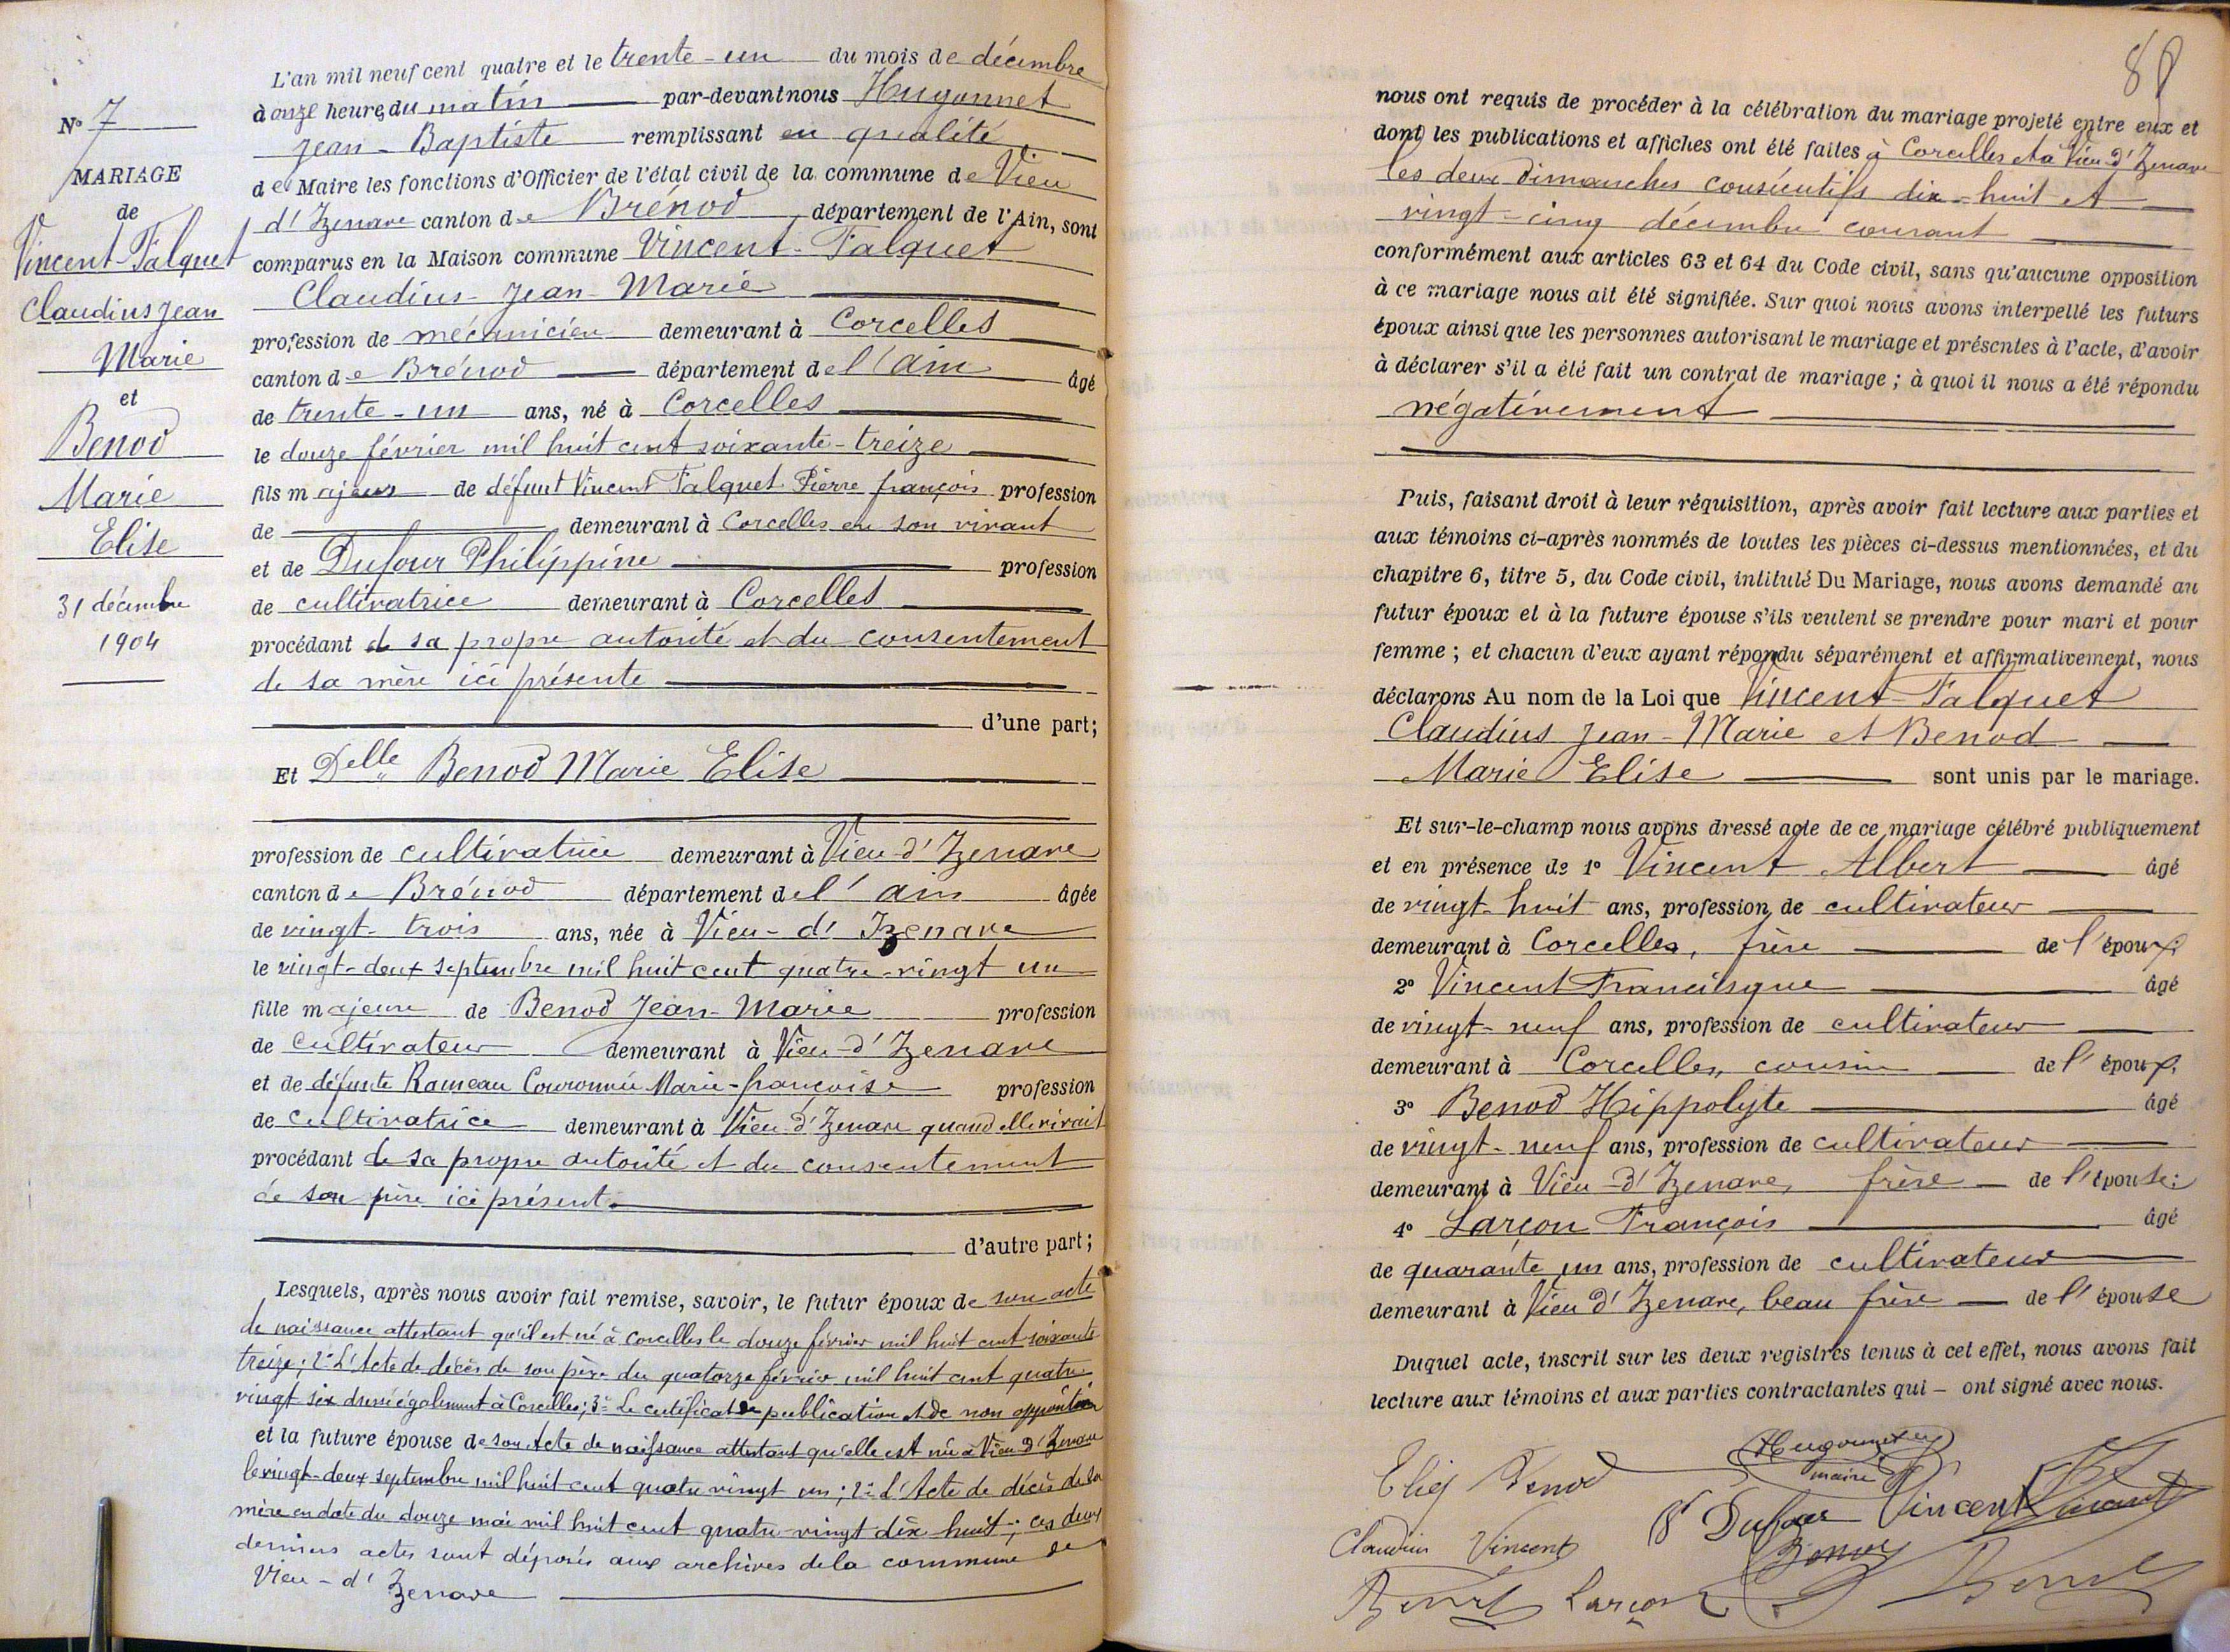 N° 7
MARIAGE
de
Vincent-Falquet
Claudius Jean
Marie
et
Benod
Marie
Elise
31 décembre
1904
L'an mil neuf cent quatre et le trente-un du mois de décembre
à onze heures du matin par-devant nous Hugonnet
Jean-Baptiste remplissant en qualité
de Maire les fonctions d'Officier de l'état civil de la commune de Vieu
d'Izenave canton de Brénod, département de l'Ain, sont
comparus en la Maison commune Vincent-Falquet
Claudius-Jean-Marie
profession de mécanicien demeurant à Corcelles
canton de Brénod département de l'Ain âgé
de trente-un ans, né à Corcelles
le douze février mil huit cent soixante-treize
fils majeur de défunt Vincent Falquet Pierre françois profession
de demeurant à Corcelles en son vivant
et de Dufour Philippine profession
de cultivatrice demeurant à Corcelles
procédant de sa propre autorité et du consentement
de sa mère ici présente
d'une part;
Et Delle Benod Marie Elise
profession de cultivatrice demeurant à Vieu-d'Izenave
canton de Brénod département de l'Ain âgée
de vingt-trois ans, née à Vieu-d'Izenave
le vingt-deux septembre mil huit cent quatre-vingt un
fille majeure de Benod Jean-Marie profession
de Cultivateur demeurant à Vieu-d'Izenave
et de défunte Rameau Couronnée Marie-françoise profession
de cultivatrice demeurant à Vieu-d'Izenave quand elle vivait
procédant de sa propre autorité et du consentement
de son père ici présent.
d'autre part;
Lesquels, après nous avoir fait remise, savoir, le futur époux de son acte
de naissance attestant qu'il est né à Corcelles le douze février mil huit cent soixante
treize; 2° L'Acte de décès de son père du quatorze février mil huit cent quatre
vingt six dressé également à Corcelles; 3° Le certificat de publication et de non opposition
et la future épouse de son Acte de naissance attestant qu'elle est née à Vieu d'Izenave
le vingt-deux septembre mil huit cent quatre vingt un; 2° L'Acte de décès de sa
mère en date du douze mai mil huit cent quatre-vingt dix huit; ces deux
derniers actes sont déposés aux archives de la commune de
Vieu-d'Izenave
nous ont requis de procéder à la célébration du mariage projeté entre eux et
dont les publications et affiches ont été faites à Corcelles et à Vieu d'Izenave
les deux dimanches consécutifs dix-huit et
vingt-cinq décembre courant
conformément aux articles 63 et 64 du Code civil, sans qu'aucune opposition
à ce mariage nous ait été signifiée. Sur quoi nous avons interpellé les futurs
époux ainsi que les personnes autorisant le mariage et présentes à l'acte, d'avoir
à déclarer s'il a été fait un contrat de mariage; à quoi il nous a été répondu
négativement
Puis, faisant droit à leur réquisition, après avoir fait lecture aux parties et
aux témoins ci-après nommés de toutes les pièces ci-dessus mentionnées, et du
chapitre 6, titre 5, du Code civil, intitulé Du Mariage, nous avons demandé au
futur époux et à la future épouse s'ils veulent se prendre pour mari et pour
femme; et chacun d'eux ayant répondu séparément et affirmativement, nous
déclarons Au nom de la Loi que Vincent-Falquet
Claudius Jean-Marie et Benod
Marie Elise sont unis par le mariage.
Et sur-le-champ nous avons dressé acte de ce mariage célébré publiquement
et en présence de 1° Vincent Albert âgé
de vingt-huit ans, profession de cultivateur
demeurant à Corcelles, frère de l'époux;
2° Vincent Francisque âgé
de vingt-neuf ans, profession de cultivateur
demeurant à Corcelles, cousin de l'époux;
3° Benod Hippolyte âgé
de vingt-neuf ans, profession de cultivateur
demeurant à Vieu-d'Izenave, frère de l'épouse;
4° Larçon François âgé
de quarante un ans, profession de cultivateur
demeurant à Vieu d'Izenave, beau frère de l'épouse
Duquel acte, inscrit sur les deux registres tenus à cet effet, nous avons fait
lecture aux témoins et aux parties contractantes qui – ont signé avec nous.
Hugonnet
maire
Benod
Dufour Vincent
Claudius Vincent
Benod
Larçon